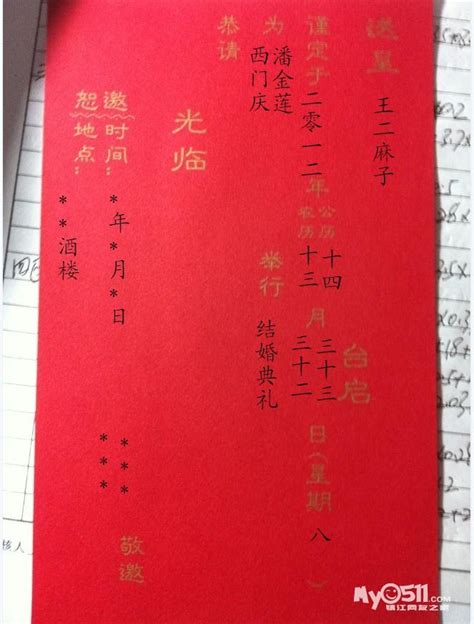 送呈
王二麻子
台启
谨定于二零一二年
公历十四月三十三
农历十三 三十二
日(星期八)
为
潘金莲
西门庆
举行
结婚典礼
恭请
光临
邀时间:*年*月*日
恕地点:**酒楼
***
***
敬邀
核人
My0511.com
镇江网友之家